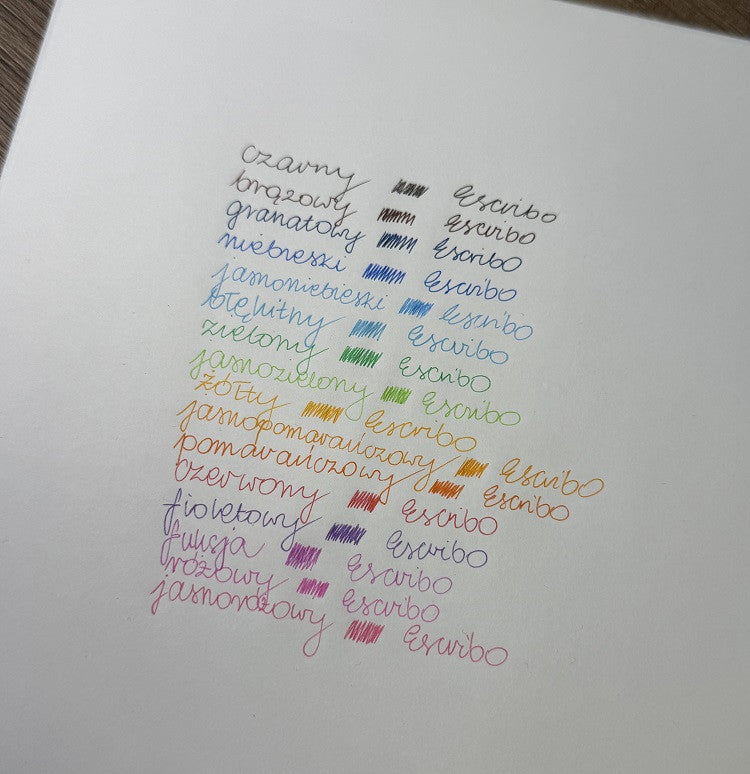 czarny Escribo
brązowy Escribo
granatowy Escribo
niebieski Escribo
jasnoniebieski Escribo
błękitny Escribo
zielony Escribo
jasnozielony Escribo
żółty Escribo
jasnopomarańczowy Escribo
pomarańczowy Escribo
czerwony Escribo
fioletowy Escribo
fuksja Escribo
różowy Escribo
jasnoróżowy Escribo